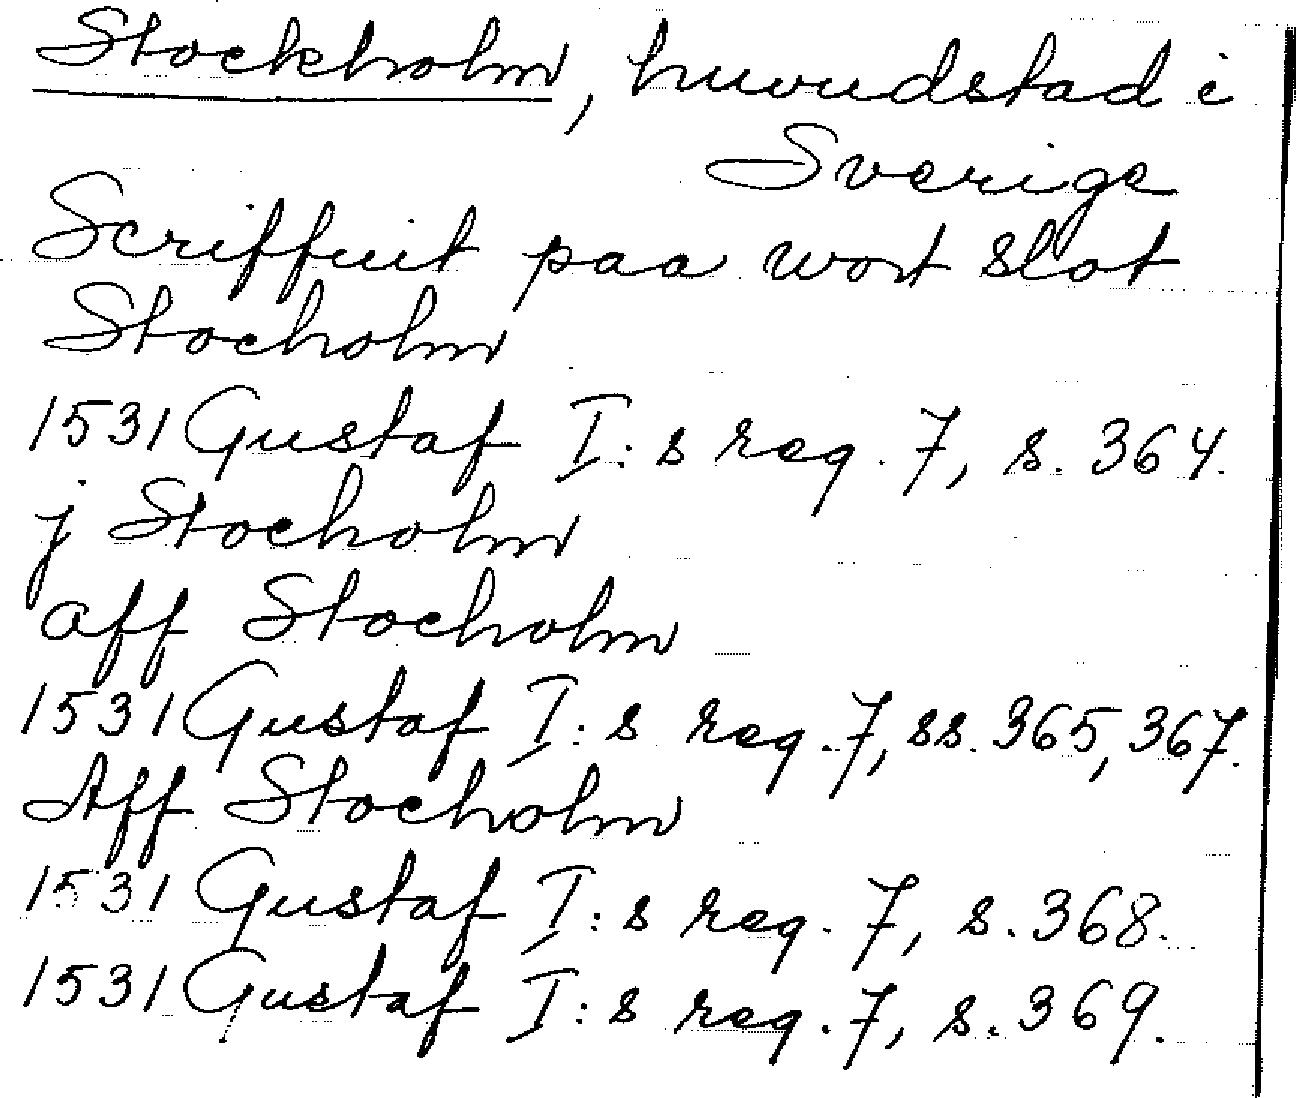 Stockholm, huvudstad i
Sverige
Scriffuit paa wort slot
Stocholm
1531 Gustaf I:s reg. 7, s. 364.
j Stocholm
aff Stocholm
1531 Gustaf I:s reg. 7, ss. 365, 367.
Aff Stocholm
1531 Gustaf I:s reg. 7, s. 368.
1531 Gustaf I:s reg. 7, s. 369.